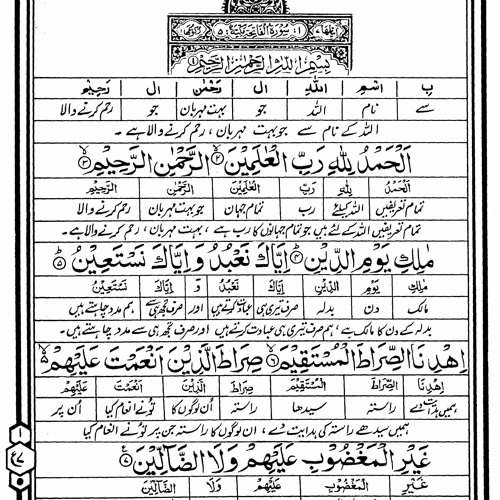 ١: سُوْرَةُ الْفَاتِحَةِ مَكِّيَّةٌ: ٥
بِسْمِ اللّٰهِ الرَّحْمٰنِ الرَّحِيْمِ ١
ب اسْمِ اللّٰهِ ال رَحْمٰنِ ال رَحِيْمِ
سے نام اللہ جو بہت مہربان جو رحم کرنے والا
اللہ کے نام سے جو بہت مہربان ، رحم کرنے والا ہے ۔
اَلْحَمْدُ لِلّٰهِ رَبِّ الْعٰلَمِيْنَ ٢ الرَّحْمٰنِ الرَّحِيْمِ ٣
اَلْحَمْدُ لِلّٰهِ رَبِّ الْعٰلَمِيْنَ الرَّحْمٰنِ الرَّحِيْمِ
تمام تعریفیں اللہ کیلئے رب تمام جہان جو بہت مہربان رحم کرنے والا
تمام تعریفیں اللہ کے لئے ہیں جو تمام جہانوں کا رب ہے ، بہت مہربان ، رحم کرنے والا ہے ۔
مٰلِكِ يَوْمِ الدِّيْنِ ٤ اِيَّاكَ نَعْبُدُ وَاِيَّاكَ نَسْتَعِيْنُ ٥
مٰلِكِ يَوْمِ الدِّيْنِ اِيَّاكَ نَعْبُدُ وَ اِيَّاكَ نَسْتَعِيْنُ
مالک دن بدلہ صرف تیری ہی عبادت کرتے ہیں اور صرف تجھ ہی سے ہم مدد چاہتے ہیں
بدلہ کے دن کا مالک ہے ، ہم صرف تیری ہی عبادت کرتے ہیں اور صرف تجھ ہی سے مدد چاہتے ہیں ۔
اِهْدِنَا الصِّرَاطَ الْمُسْتَقِيْمَ ٦ صِرَاطَ الَّذِيْنَ اَنْعَمْتَ عَلَيْهِمْ
اِهْدِنَا الصِّرَاطَ الْمُسْتَقِيْمَ صِرَاطَ الَّذِيْنَ اَنْعَمْتَ عَلَيْهِمْ
ہمیں ہدایت دے راستہ سیدھا راستہ اُن لوگوں کا تُو نے انعام کیا اُن پر
ہمیں سیدھے راستہ کی ہدایت دے ، ان لوگوں کا راستہ جن پر تو نے انعام کیا
غَيْرِ الْمَغْضُوْبِ عَلَيْهِمْ وَلَا الضَّآلِّيْنَ ٧
غَيْرِ الْمَغْضُوْبِ عَلَيْهِمْ وَلَا الضَّآلِّيْنَ